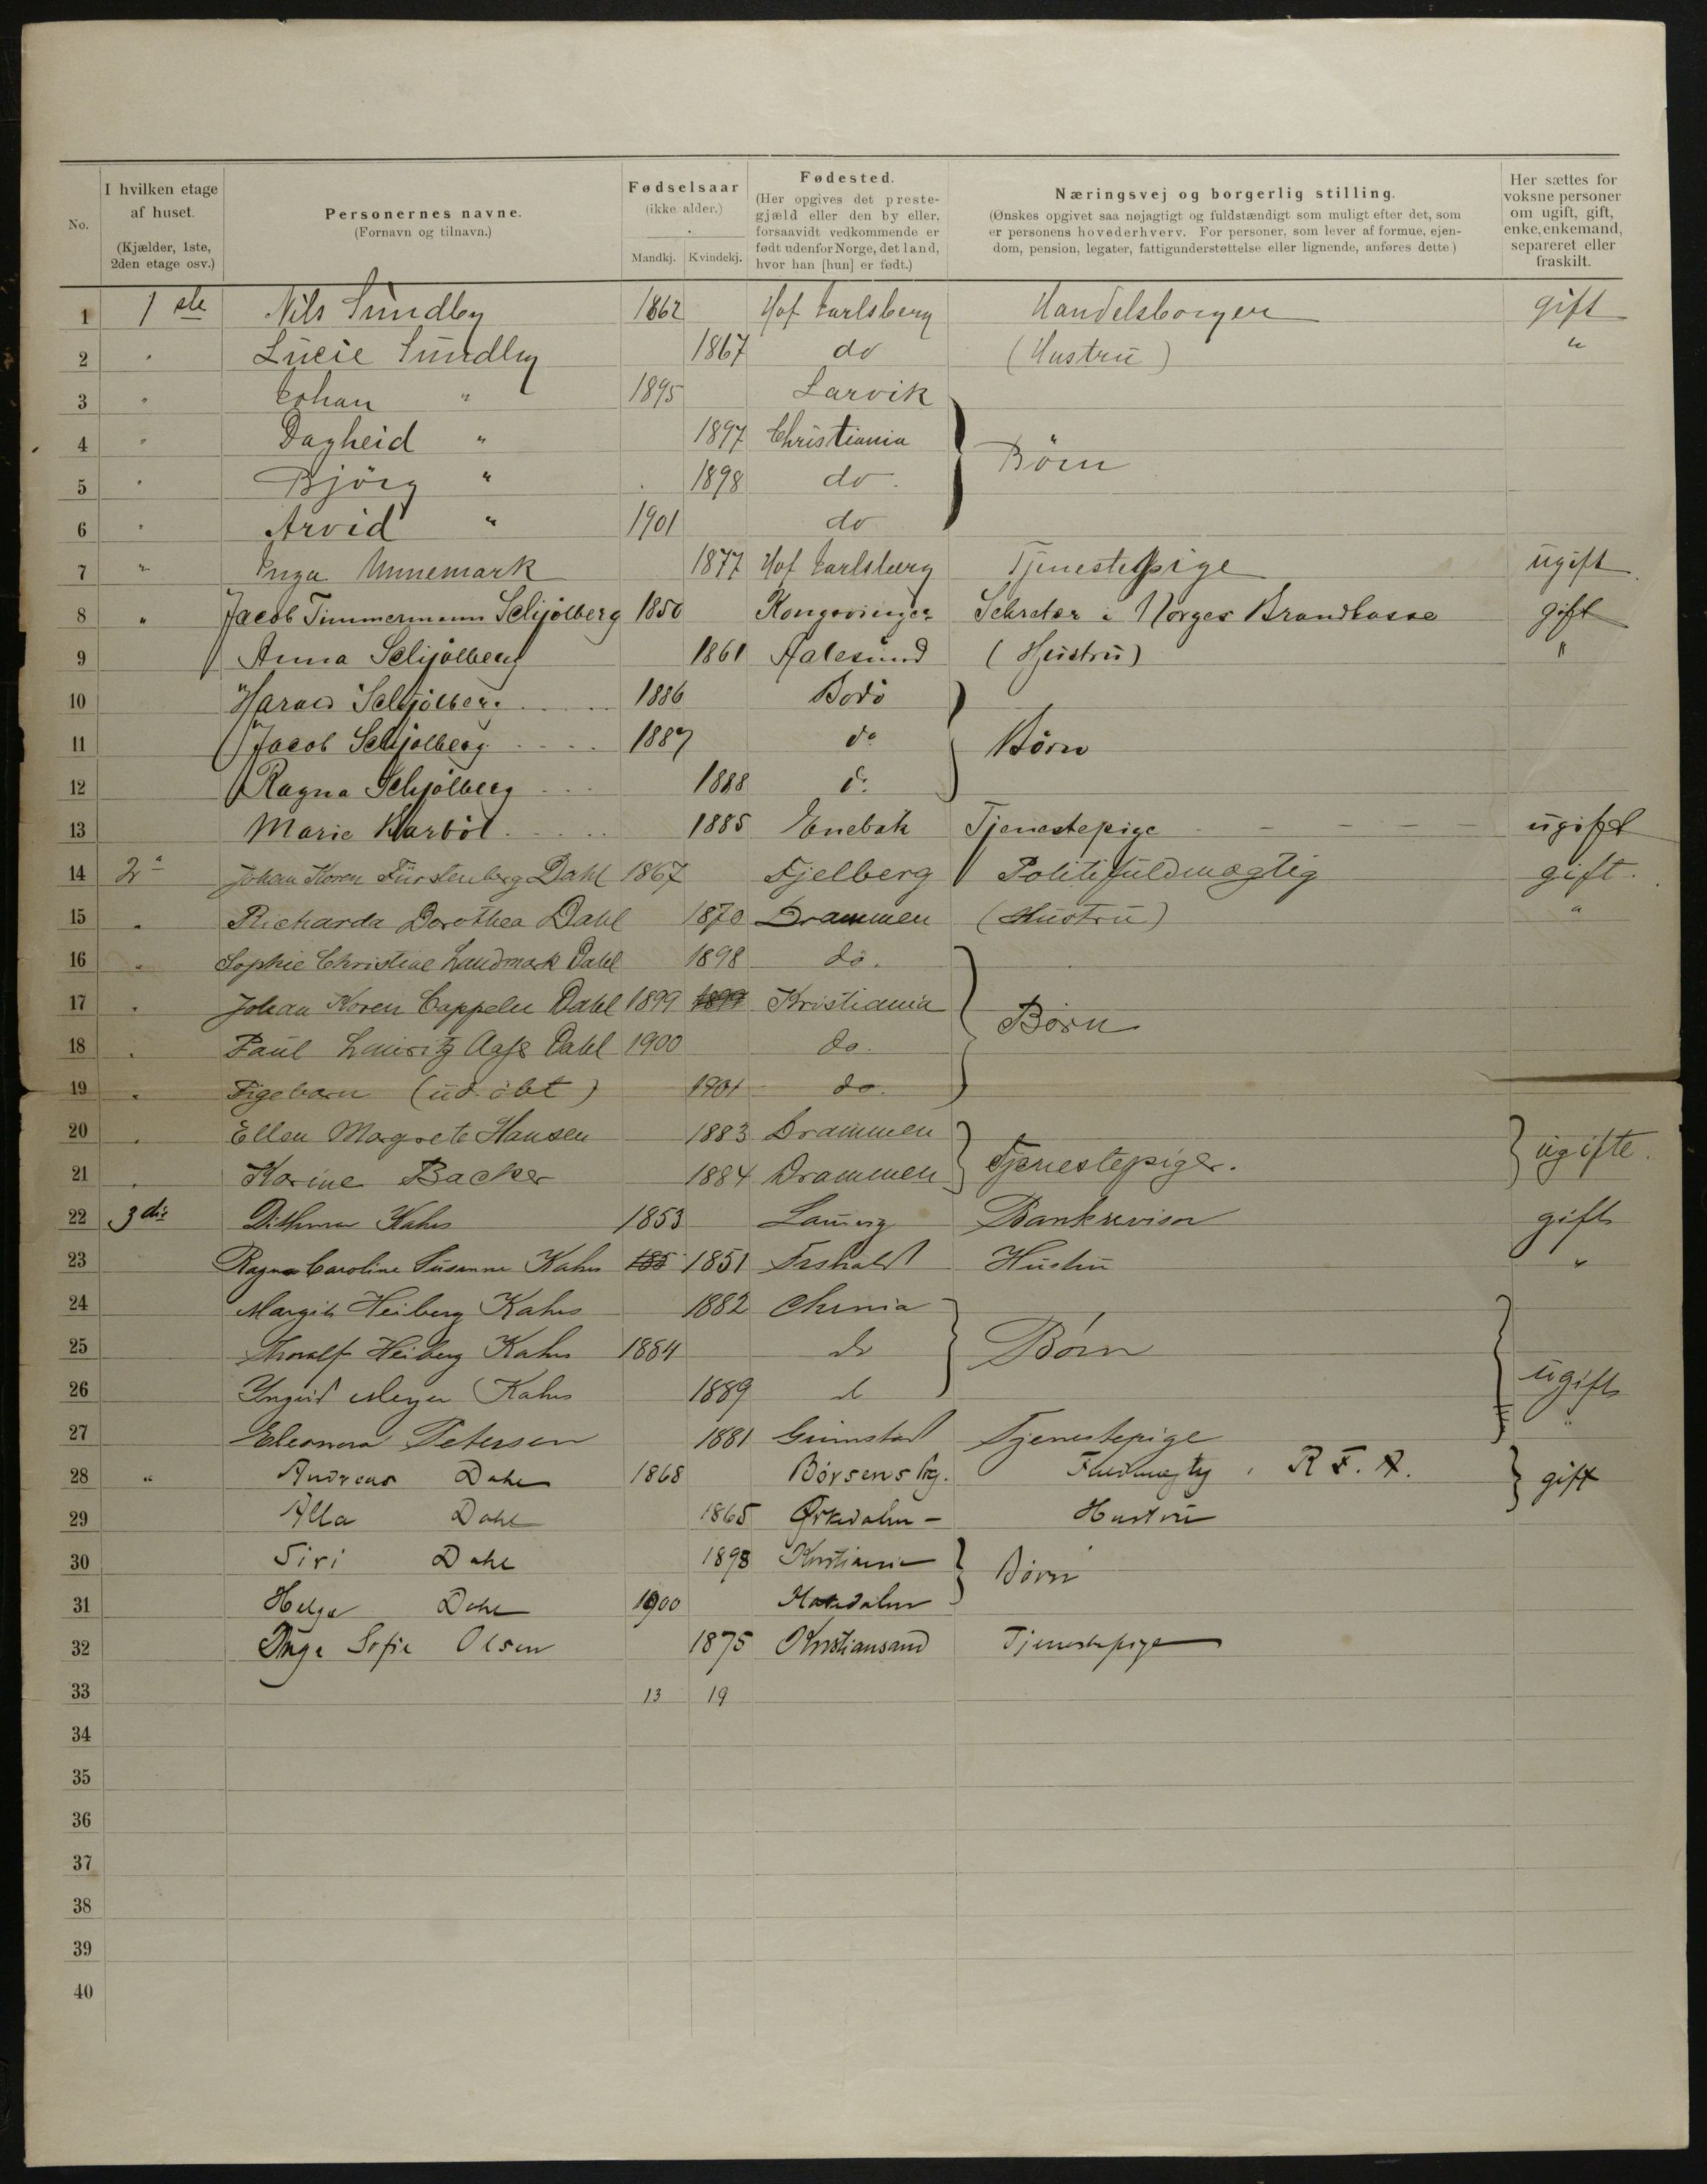 No. I hvilken etage af huset. (Kjælder, 1ste, 2den etage osv.) Personernes navne. (Fornavn og tilnavn.) Fødselsaar (ikke alder.) Mandkj. Kvindekj. Fødested. (Her opgives det prestegjæld eller den by eller, forsaavidt vedkommende er født udenfor Norge, det land, hvor han [hun] er født.) Næringsvej og borgerlig stilling. (Ønskes opgivet saa nøjagtigt og fuldstændigt som muligt efter det, som er personens hovederhverv. For personer, som lever af formue, ejendom, pension, legater, fattigunderstøttelse eller lignende, anføres dette) Her sættes for voksne personer om ugift, gift, enke, enkemand, separeret eller fraskilt.
1 1ste Nils Sundby 1862 Hof Jarlsberg Handelsborger gift
2 " Lucie Sundby 1867 do (Hustru) "
3 " Johan " 1895 Larvik
4 " Dagheid " 1897 Christiania } Børn
5 " Bjørg " 1898 do.
6 " Arvid " 1901 do
7 " Inga Unnemark 1877 Hof Jarlsberg Tjenestepige ugift
8 " Jacob Timmermann Schjølberg 1850 Kongsvinger Sekretær i Norges Brandkasse gift
9 Anna Schjølberg 1861 Aalesund (Hustru) "
10 Harald Schjølberg 1886 Bodø
11 Jacob Schjølberg 1887 do } Børn
12 Ragna Schjølberg 1888 do
13 Marie Karbøl 1885 Enebak Tjenestepige ugift
14 2 Johan Koren Fürstenberg Dahl 1867 Fjelberg Politifuldmægtig gift.
15 " Richarda Dorothea Dahl 1870 Drammen (Hustru) "
16 " Sophie Christine Landmark Dahl 1898 do.
17 " Johan Koren Cappelen Dahl 1899 1899 Kristiania } Børn
18 " Paul Lauritz Aass Dahl 1900 do.
19 " Pigebarn (udøbt) 1901 do.
20 " Ellen Magrete Hansen 1883 Drammen } Tjenestepiger. } ugifte.
21 " Karine Backer 1884 Drammen
22 3die Dithmar Kahrs 1853 Laurvig Bankrevisor gift
23 Ragna Caroline Susanne Kahrs 185 1851 Frshald Hustru "
24 Margit Heiberg Kahrs 1882 Chrnia
25 Thoralf Heiberg Kahrs 1884 do } Børn
26 Yngvid Meyer Kahrs 1889 do ugift
27 Eleonora Petersen 1881 Grimstad Tjenestepige "
28 " Andreas Dahl 1868 Børsensk. Fuldmægtig i R F. A. } gift
29 Alla Dahl 1865 Ørkedalen Hustru
30 Siri Dahl 1898 Kristiania } Børn
31 Helge Dahl 1900
32 Inga Sofie Olsen 1875 Kristiansand Tjenestepige
33 13 19
34
35
36
37
38
39
40